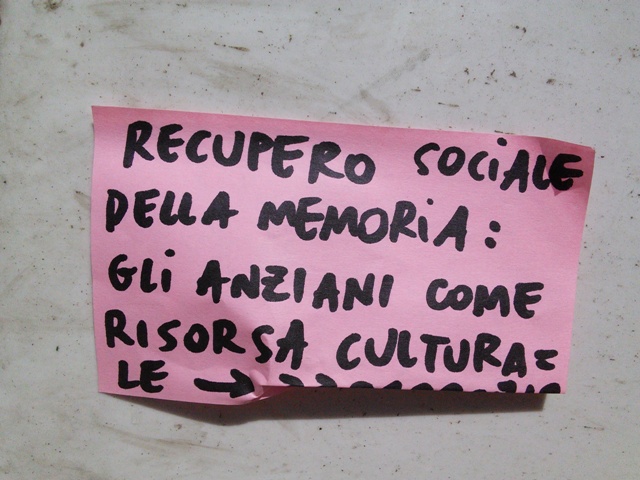 RECUPERO SOCiALE
DELLA MEMORiA:
GLi ANZIANI COME
RISORSA CULTURA=
LE →